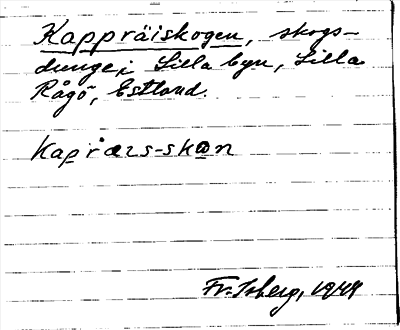 Kappräiskogen, skogs-
dunge i Lilla byn, Lilla
Rågö, Estland.
kapræis-skɷn
Fr. Isberg, 1944